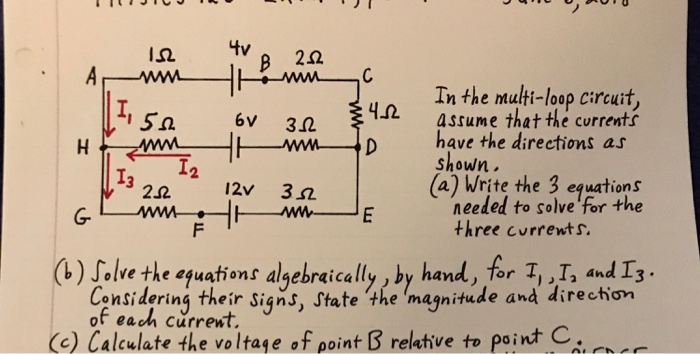 1Ω 4v B 2Ω
A C
I₁ 4Ω
5Ω 6v 3Ω
H D
I₂
I₃ 2Ω 12v 3Ω
G F E
In the multi-loop circuit,
assume that the currents
have the directions as
shown.
(a) Write the 3 equations
needed to solve for the
three currents.
(b) Solve the equations algebraically, by hand, for I₁, I₂ and I₃.
Considering their signs, state the magnitude and direction
of each current.
(c) Calculate the voltage of point B relative to point C.